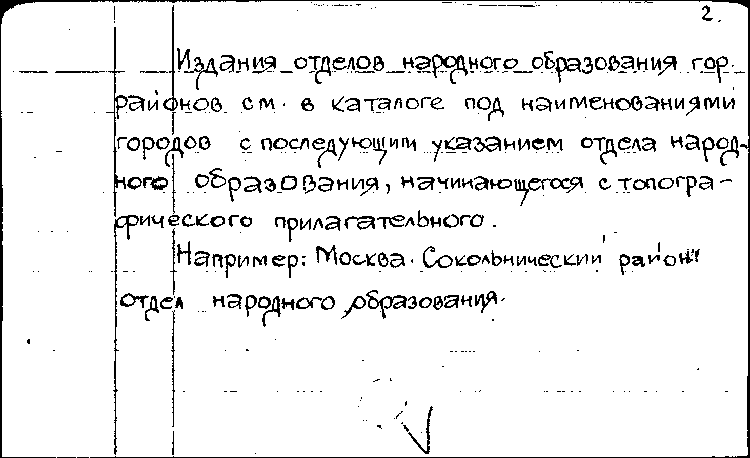 2.
Издания отделов народного образования гор.
районов см. в каталоге под наименованиями
городов с последующим указанием отдела народ-
ного образования, начинающегося с топогра-
фического прилагательного.
Например: Москва. Сокольнический район
отдел народного образования.